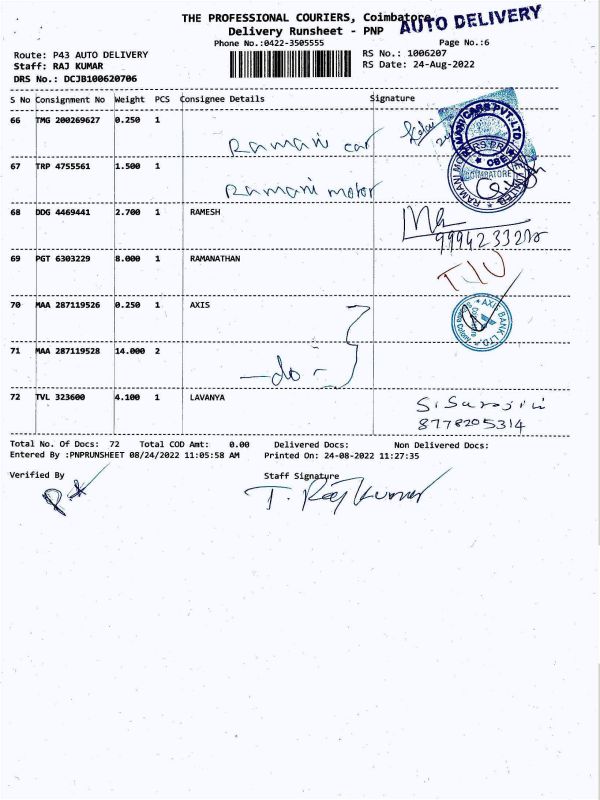 THE PROFESSIONAL COURIERS, Coimbatore
AUTO DELIVERY
Delivery Runsheet - PNP
Phone No.:0422-3505555 Page No.:6
Route: P43 AUTO DELIVERY RS No.: 1006207
Staff: RAJ KUMAR RS Date: 24-Aug-2022
DRS No.: DCJB100620706
S No Consignment No Weight PCS Consignee Details Signature
66 TMG 200269627 0.250 1
Ramani car
RAMANI CARS PVT.LTD.
CBE
67 TRP 4755561 1.500 1
Ramani motor
RAMANI MOTORS PRIVATE LIMITED
COIMBATORE
68 DDG 4469441 2.700 1 RAMESH
69 PGT 6303229 8.000 1 RAMANATHAN
70 MAA 287119526 0.250 1 AXIS
AXIS BANK LTD.
71 MAA 287119528 14.000 2
-do-
72 TVL 323600 4.100 1 LAVANYA
S. Sarojini
8778205314
Total No. Of Docs: 72 Total COD Amt: 0.00 Delivered Docs: Non Delivered Docs:
Entered By :PNPRUNSHEET 08/24/2022 11:05:58 AM Printed On: 24-08-2022 11:27:35
Verified By Staff Signature
T. Raj Kumar